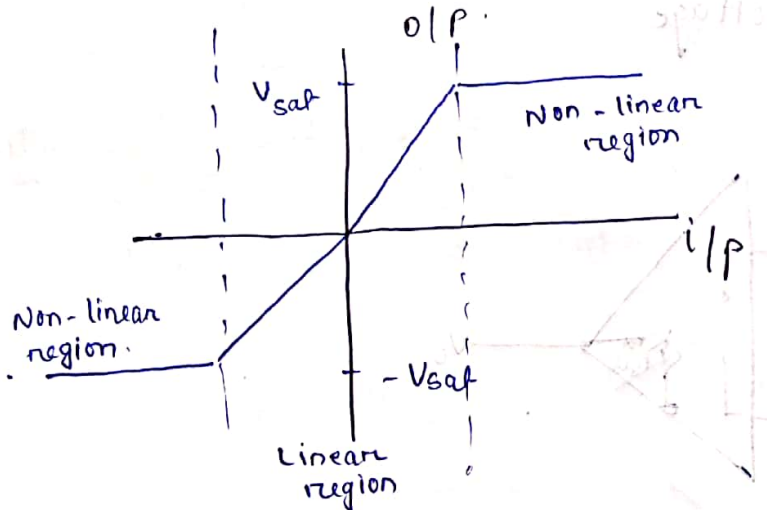 O/P.
Vsat
Non-linear
region
i/p
Non-linear
region.
-Vsat
Linear
region